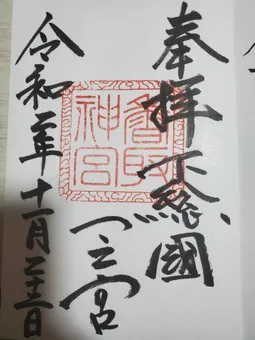 奉拝
下総國
一之宮
香取
神宮
令和二年十一月二十三日